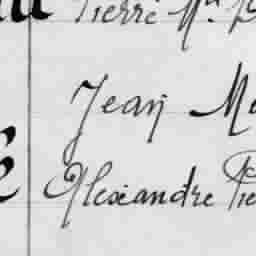 Pierre M
Jean M
Alexandre Pie